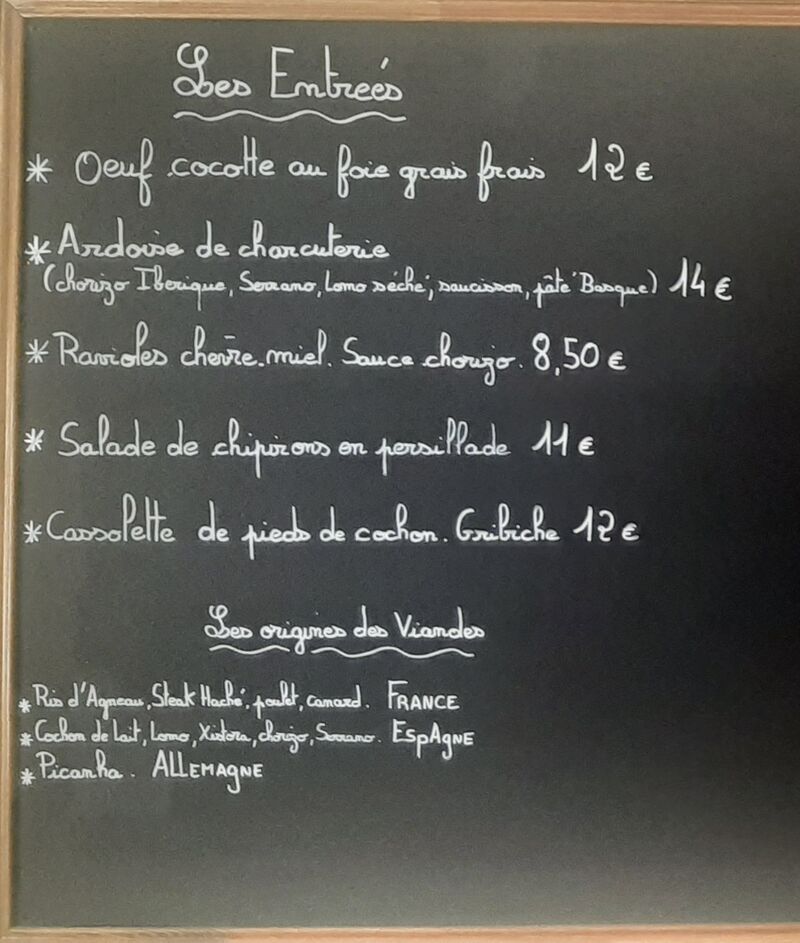 Les Entrées
* Oeuf cocotte au foie grais frais 12 €
* Ardoise de charcuterie
(chorizo Iberique, Serrano, Lomo séché, saucisson, pâté Basque) 14 €
* Ravioles chèvre.miel. Sauce chorizo. 8,50 €
* Salade de chipirons en persillade 11 €
* Cassolette de pieds de cochon. Gribiche 12 €
Les origines des Viandes
* Ris d'Agneau, Steak Haché, poulet, canard. FRANCE
* Cochon de lait, Lomo, Xistora, chorizo, Serrano. EspAgNE
* Picanha. ALLEMAGNE